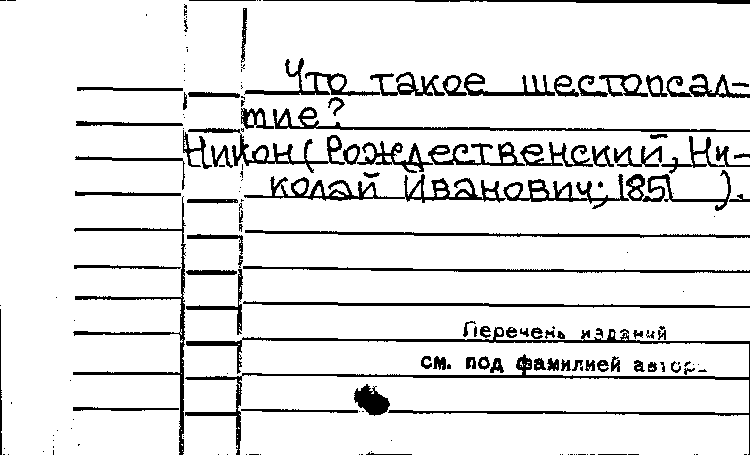 Что такое шестопсал-
тие?
Никон (Рождественский, Ни-
колай Иванович; 1851 ).
Перечень изданий
см. под фамилией автора